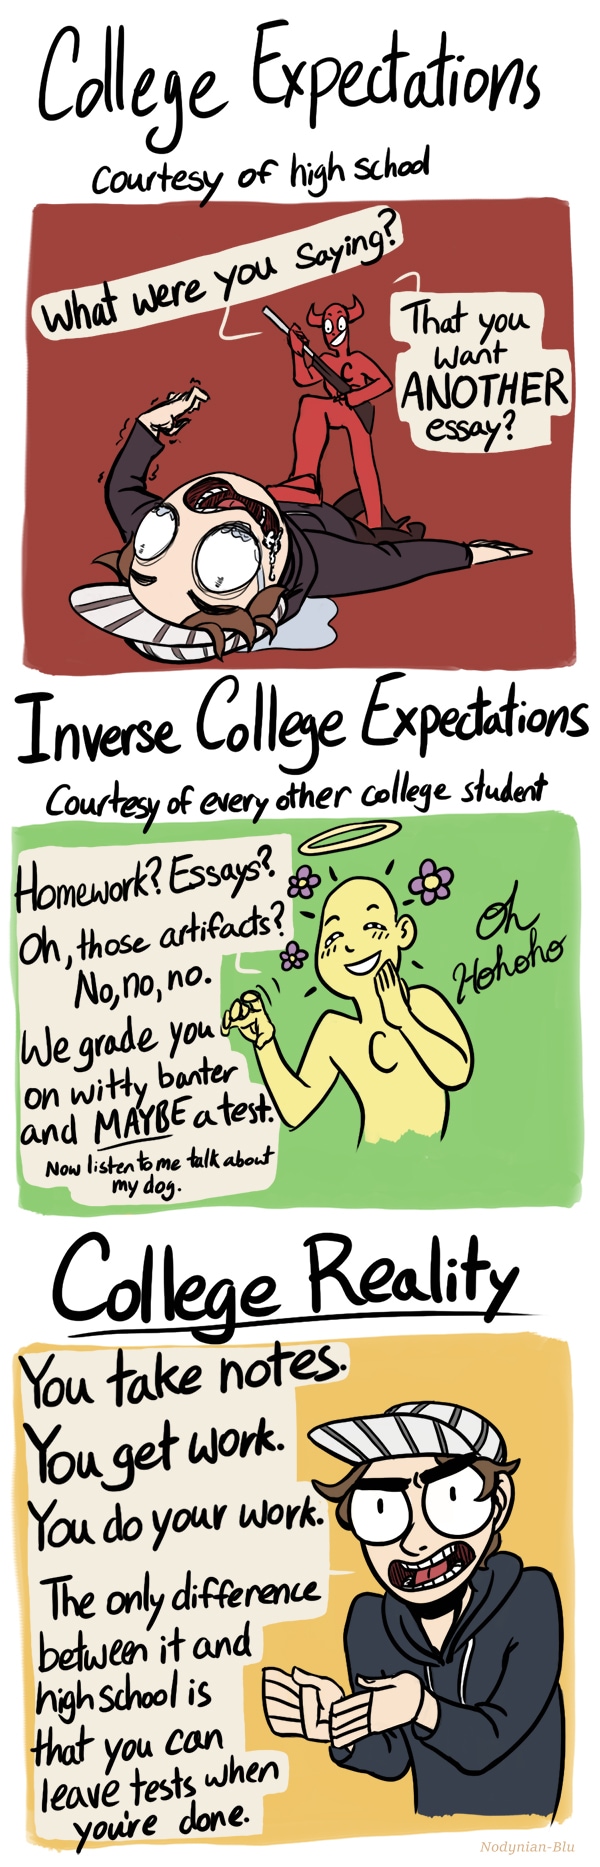 College Expectations
courtesy of high school
What were you saying?
That you
want
ANOTHER
essay?
Inverse College Expectations
Courtesy of every other college student
Homework? Essays?
Oh, those artifacts?
No, no, no.
We grade you
on witty banter
and MAYBE a test.
Now listen to me talk about
my dog.
Oh
Hohoho
C
College Reality
You take notes.
You get work.
You do your work.
The only difference
between it and
high school is
that you can
leave tests when
you're done.
Nodynian-Blu